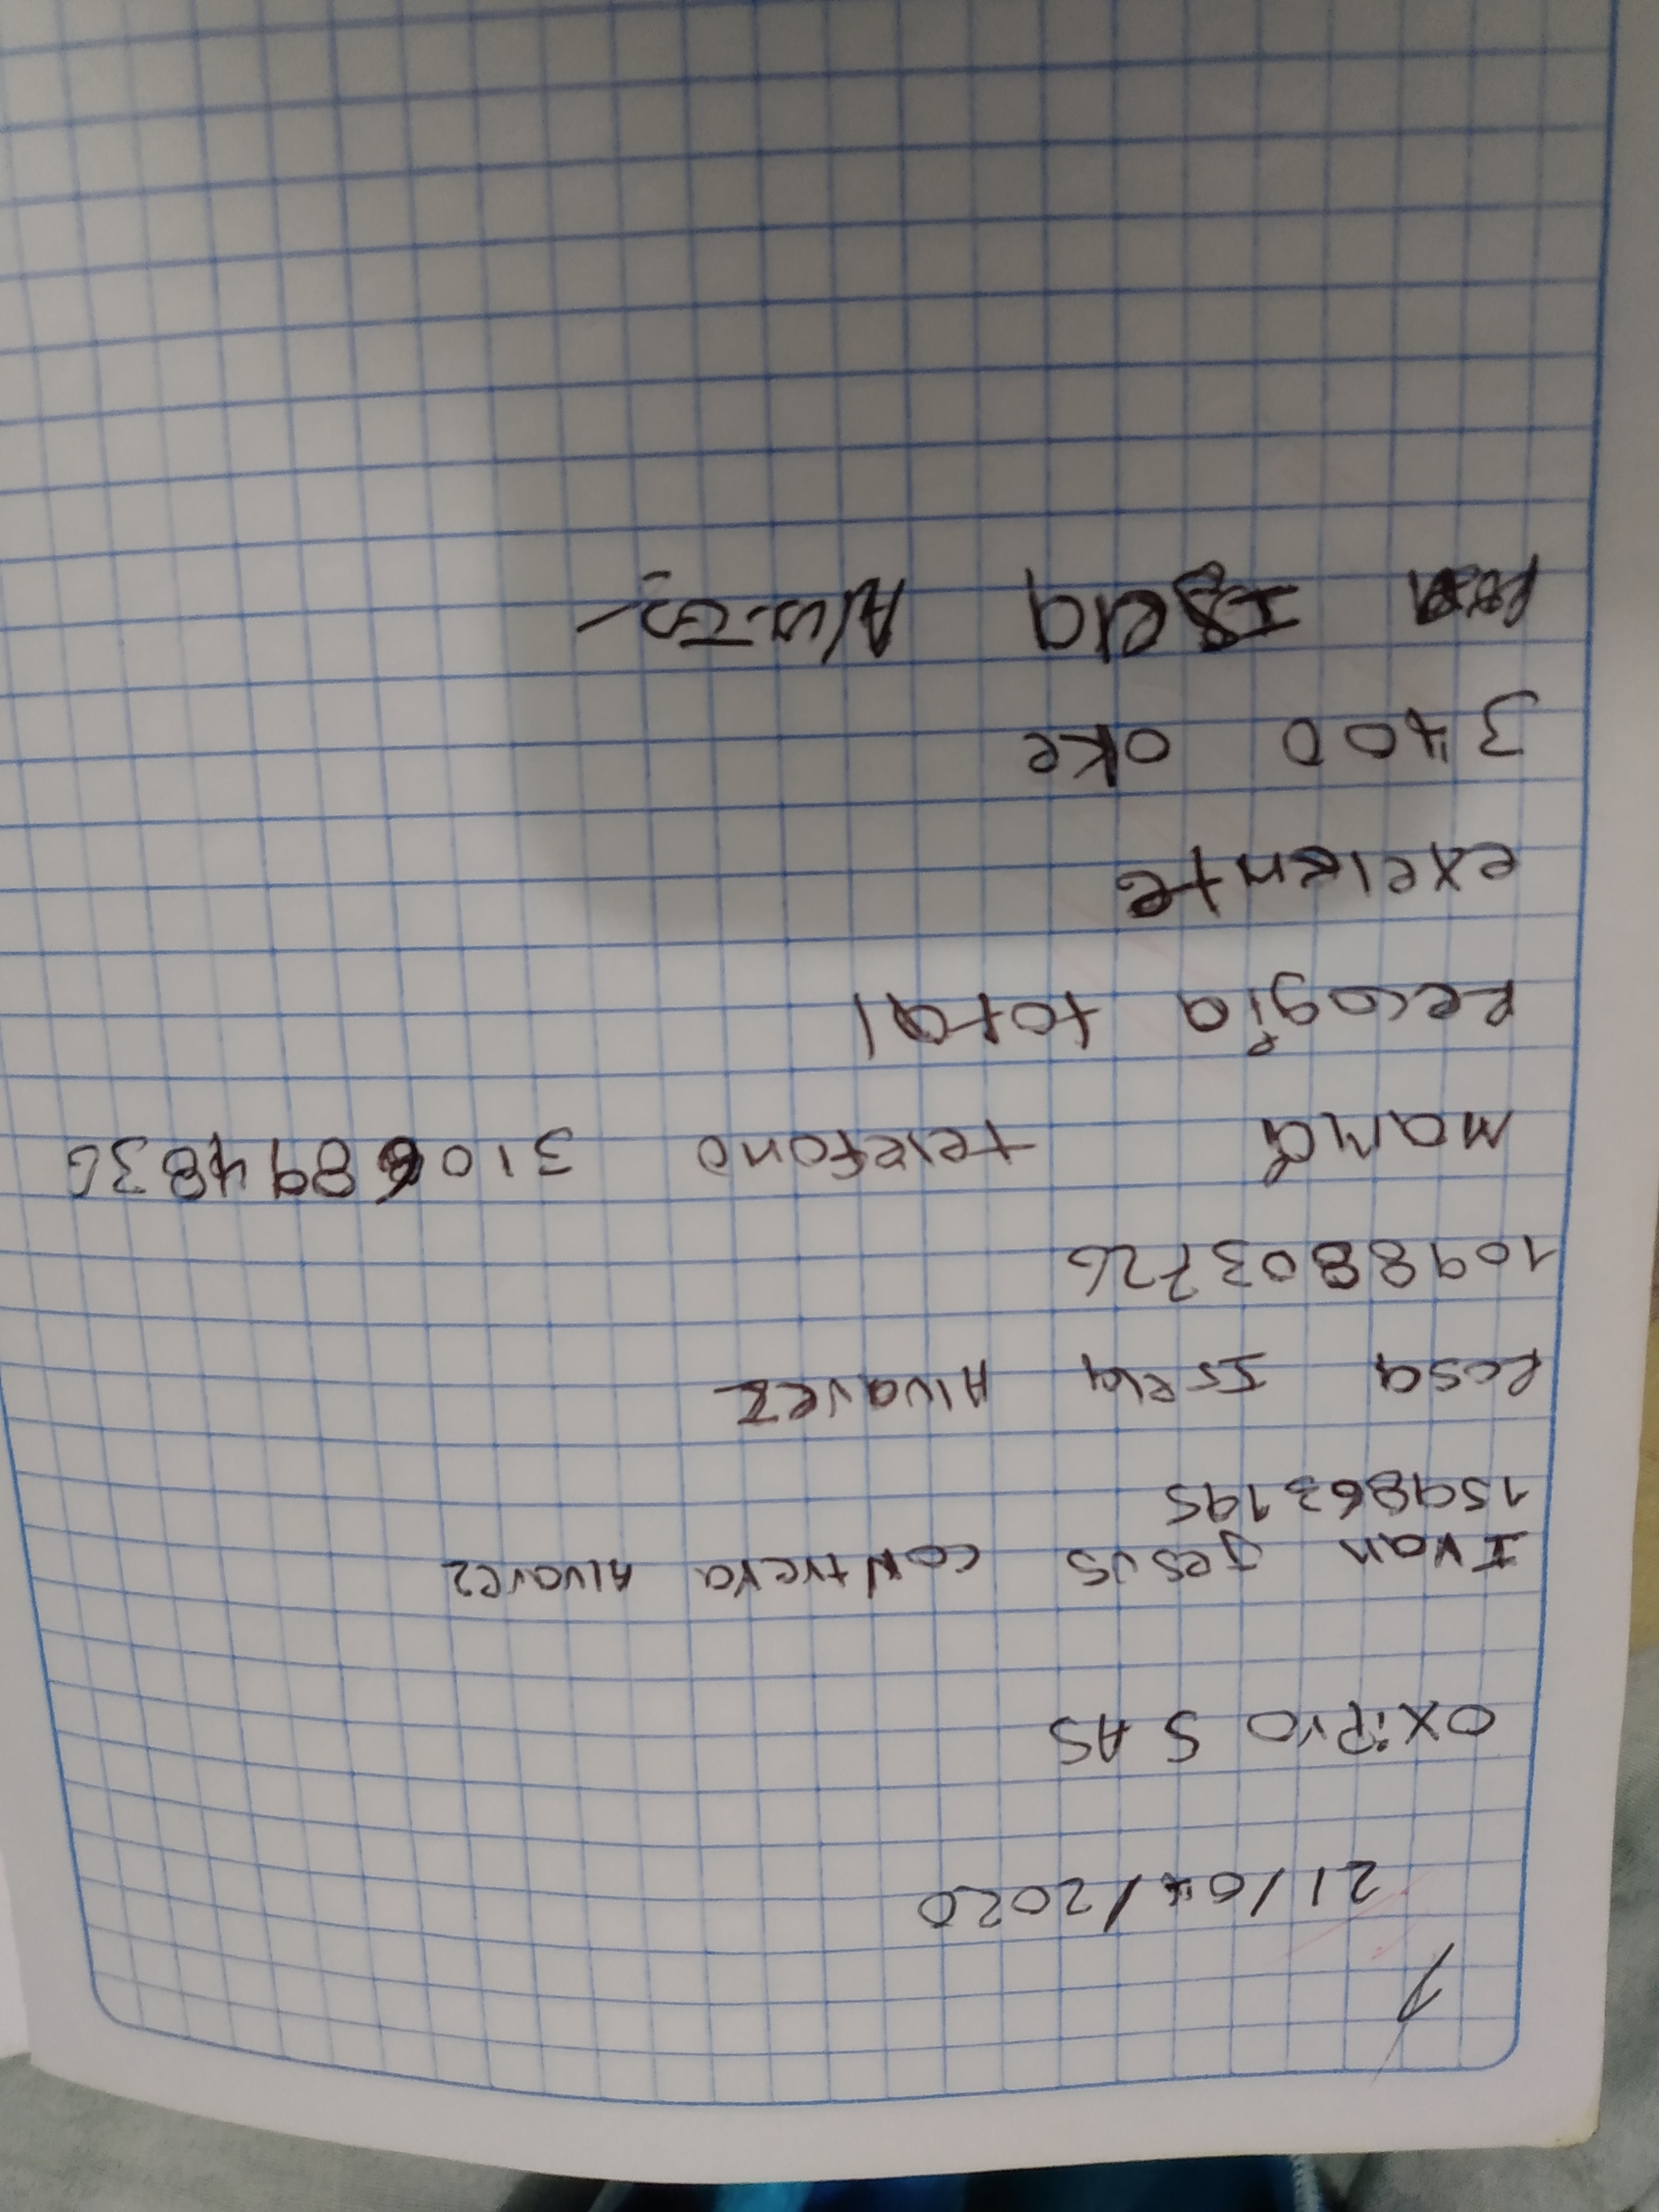 1
21/04/2020
oxipro S AS
Ivan jesus contrera Alvarez
159863195
Rosa Isela Alvarez
1098803726
mamá telefono 3106894836
Recogia total
exelente
3400 oke
Rosa Isela